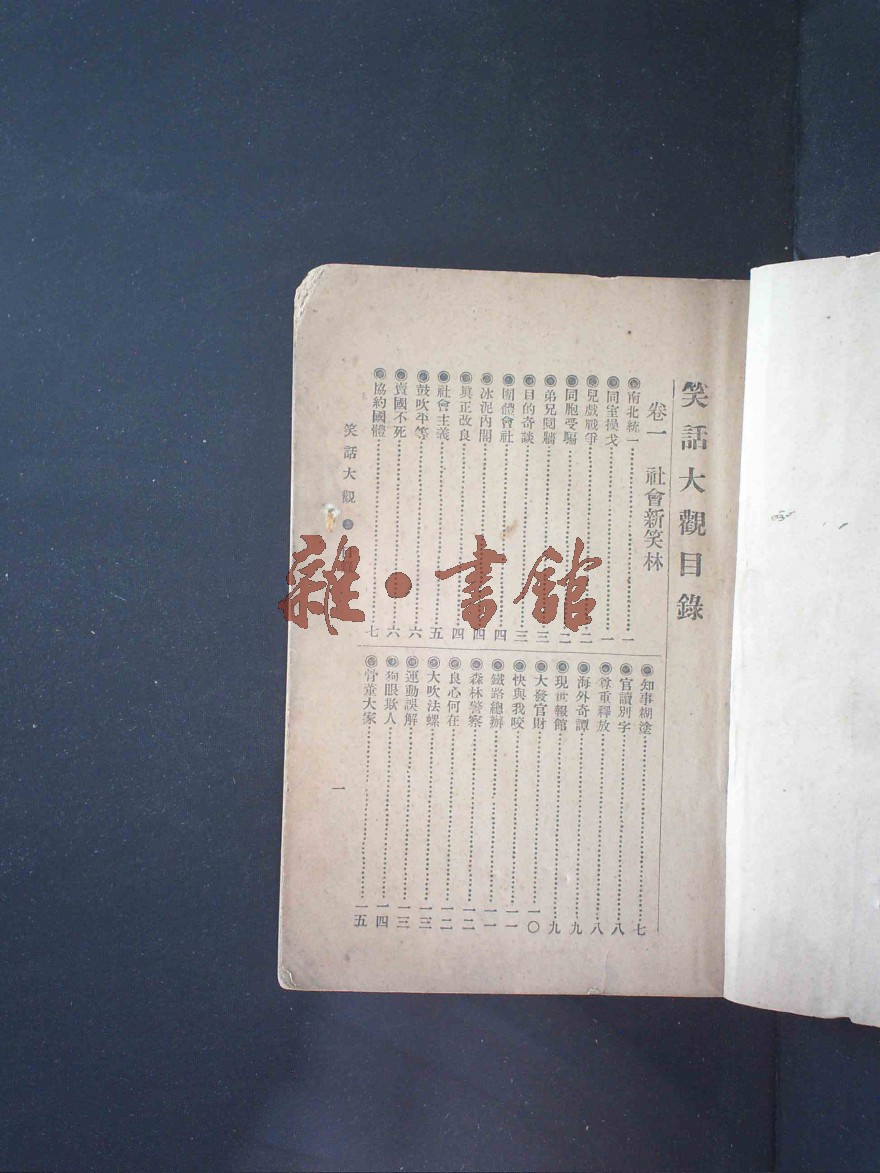 笑話大觀目錄
卷一 社會新笑林
◉南北統一……一
◉同室操戈……一
◉兒戲戰爭……二
◉同胞受騙……二
◉弟兄鬩牆……三
◉目的奇談……三
◉團體會社……四
◉冰泥內閣……四
◉眞正改良……四
◉社會主義……五
◉鼓吹平等……六
◉賣國不死……六
◉協約國體……七
◉知事糊塗……七
◉官讀別字……八
◉尊重釋放……八
◉海外奇譚……九
◉現世報館……九
◉大發官財……一〇
◉快與我咬……一一
◉鐵路總辦……一一
◉森林警察……一二
◉良心何在……一二
◉大吹法螺……一三
◉運動誤解……一三
◉狗眼欺人……一四
◉骨董大家……一五
笑話大觀
一
雜·書館